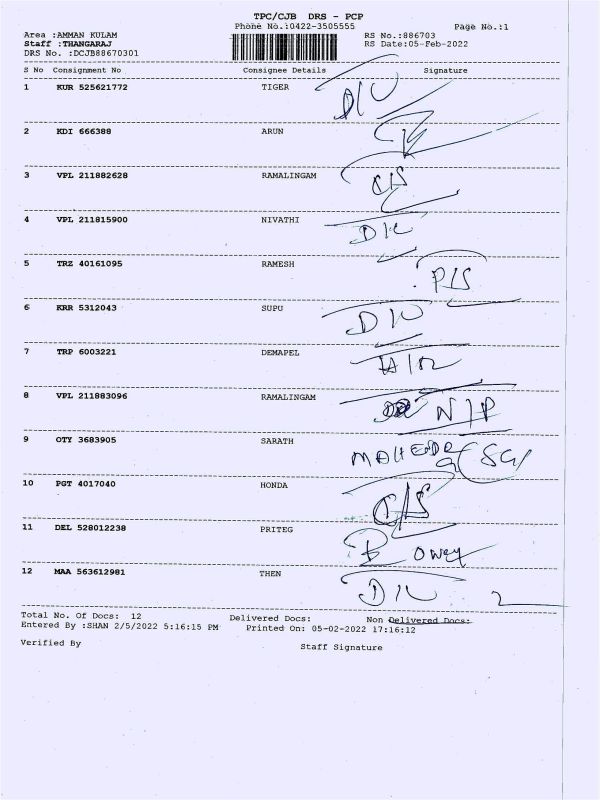 TPC/CJB DRS - PCP
Phone No.:0422-3505555 Page No.:1
Area :AMMAN KULAM RS No.:886703
Staff :THANGARAJ RS Date:05-Feb-2022
DRS No. :DCJB88670301
S No Consignment No Consignee Details Signature
1 KUR 525621772 TIGER
2 KDI 666388 ARUN
3 VPL 211882628 RAMALINGAM
4 VPL 211815900 NIVATHI
5 TRZ 40161095 RAMESH
6 KRR 5312043 SUPU
7 TRP 6003221 DEMAPEL
8 VPL 211883096 RAMALINGAM N/P
9 OTY 3683905 SARATH
10 PGT 4017040 HONDA
11 DEL 528012238 PRITEG
12 MAA 563612981 THEN
Total No. Of Docs: 12 Delivered Docs: Non Delivered Docs:
Entered By :SHAN 2/5/2022 5:16:15 PM Printed On: 05-02-2022 17:16:12
Verified By Staff Signature